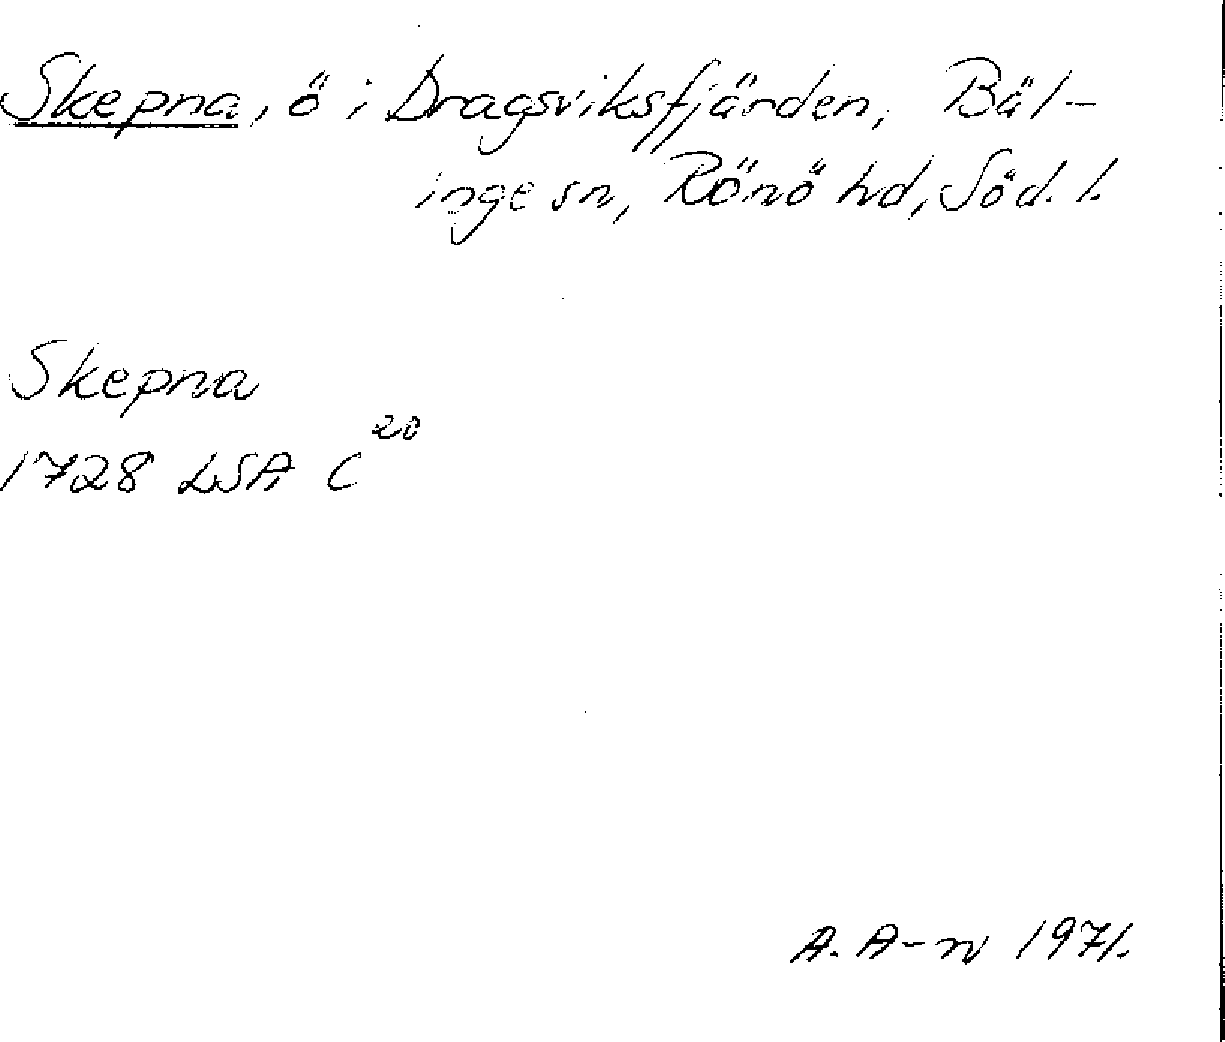 Skepna, ö i Dragsviksfjärden, Bäl-
inge sn, Rönö hd, Söd. l.
Skepna
1728 LSA C 20
A. A-n 1971.